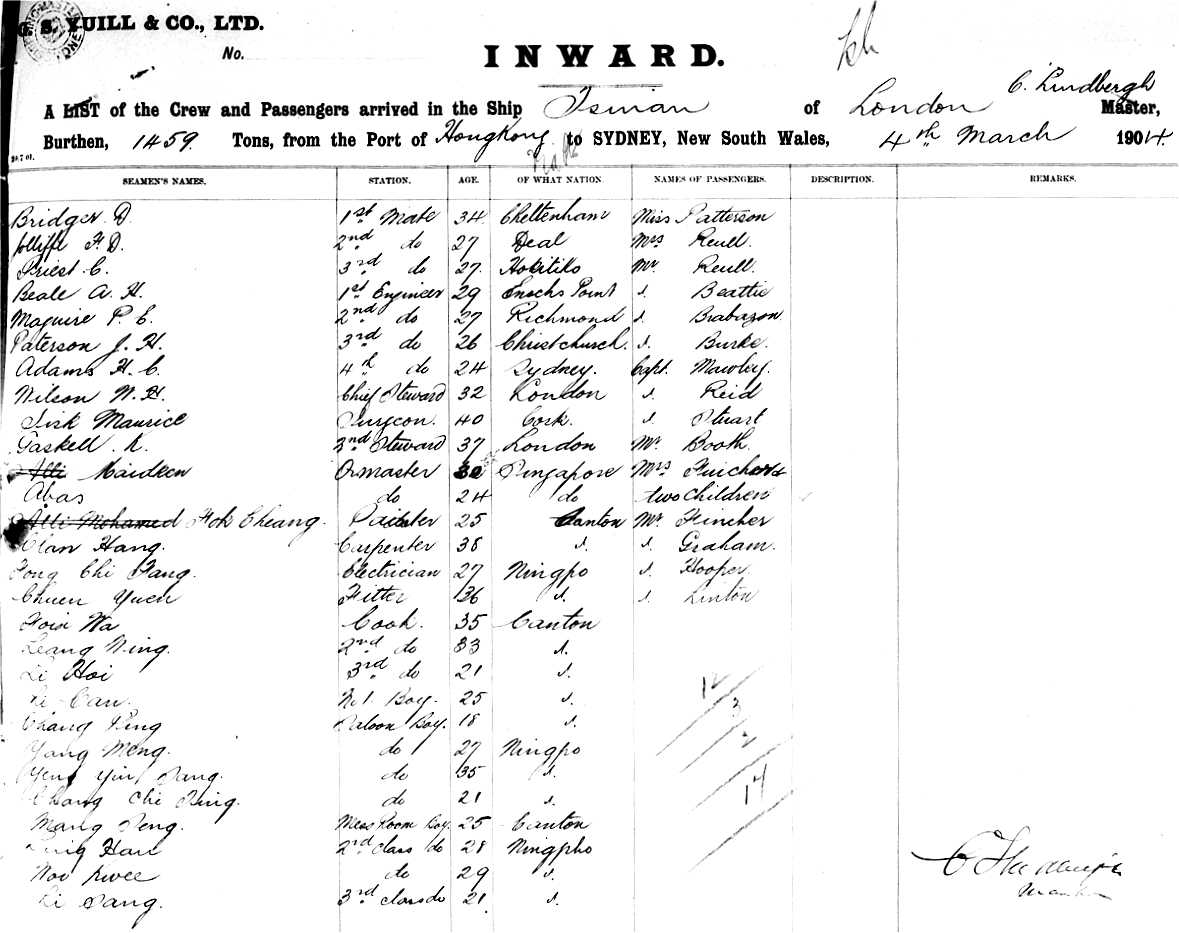 G. S. YUILL & CO., LTD.
No.
INWARD.
C. Lindbergh
A LIST of the Crew and Passengers arrived in the Ship Tsinan of London Master,
Burthen, 1459 Tons, from the Port of Hongkong to SYDNEY, New South Wales, 4th March 1904.
SEAMEN'S NAMES. STATION. AGE. OF WHAT NATION. NAMES OF PASSENGERS. DESCRIPTION. REMARKS.
Bridger D. 1st Mate 34 Cheltenham Miss Patterson
Jolliffe F. D. 2nd do 27 Deal Mrs Reull.
Priest C. 3rd do 27. Hokitika Mr Reull.
Beale A. H. 1st Engineer 29 Enochs Point d. Beattie
Maguire P. E. 2nd do 27 Richmond d. Brabazon
Paterson J. H. 3rd do 26 Christchurch. d. Burke.
Adams H. C. 4th do 24 Sydney. Capt. Mawley.
Wilson W. H. Chief Steward 32 London d. Reid
Sisk Maurice Surgeon. 40 Cork. d. Stuart
Gaskell A. 2nd Steward 37 London Mr. Booth.
Alli Maideen Qrmaster 30 Singapore Mrs
Abas do 24 do two children
Alli Mohamed Hok Cheang. Painter 25 Canton Mr Fincher
Chan Hang. Carpenter 38 d. d. Graham.
Tong Chi Fang. Electrician 27 Ningpo d. Hooper.
Chuen Yuen Fitter 36 d. d. Linton
Wa Cook. 35 Canton
Leang Ning. 2nd do 33 d.
Li Hoi 3rd do 21 d.
No 1. Boy. 25 d.
Chang Saloon Boy. 18 d.
Yang Meng. do 27 Ningpo
Yeng Yin do 35 d.
Chang Chi do 21 d.
Mess Room Boy. 25 Canton
2nd class do 28 Ningpho
Woo Kwee do 29 d.
Li 3rd class do 21. d.
12
3
2
17